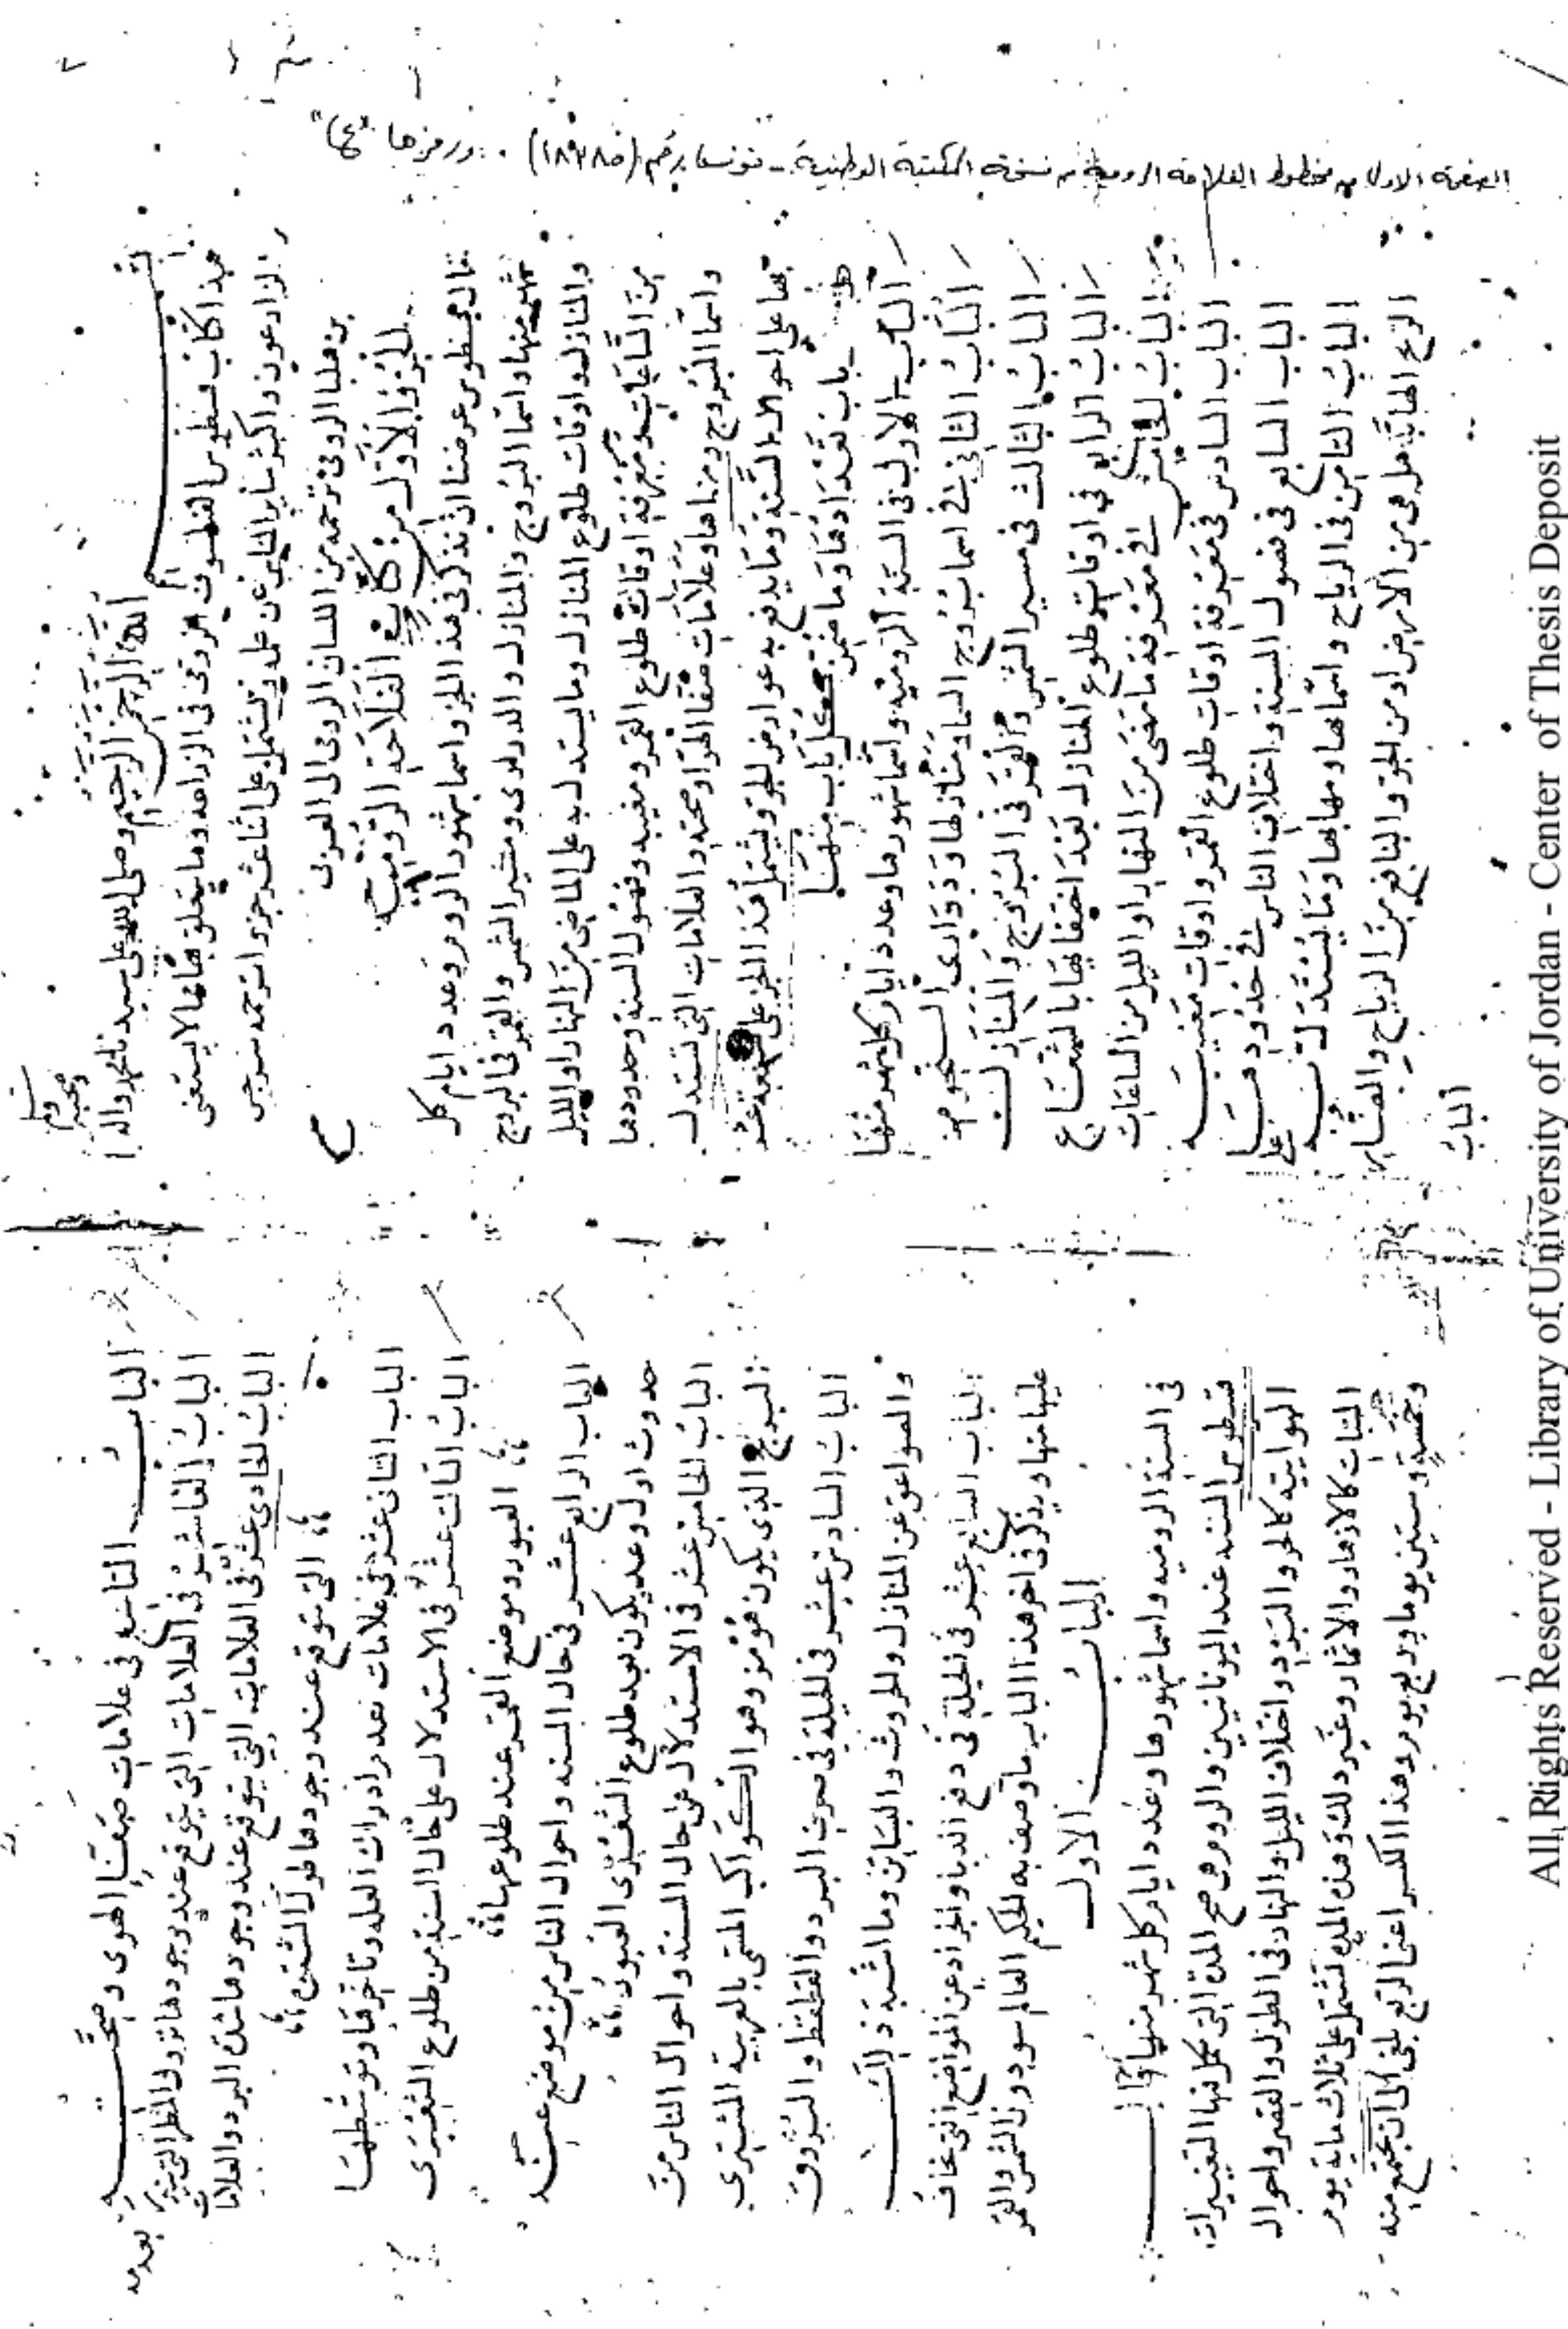 الصفحة الاولى من مخطوط الفلاحة الرومية من نسخة المكتبة الوطنية - تونس برقم (١٨٧٨٥) . ورمزها "ع"
الله الرحمن الرحيم وصلى الله على سيدنا محمد واله
هذا كتاب قسطوس الفيلسوف في الزراعه وما يتعلق بها مما لا يستغنى
الزارعون واكثر ساير الناس عن علمه وتشتمل على اثنا عشر جزو اترجمه سرجس
بن هلبا الرومى ترجمه من اللسان الرومى الى العربى
الجزؤ الاول من كتاب الفلاحة الرومية
قال قسطوس عرضنا ان نذكر فى هذا الجزو اسما شهور الروم وعدد ايام كل
شهر منها واسما البروج والمنازل والدرارى ومسير الشمس والقمر فى البروج
والمنازل واوقات طلوع المنازل وما يستدل به على الماضى من النهار او الليل
من الساعات ومعرفة اوقات طلوع القمر ومغيبه وفصول السنة وحدودها
واسما البروج وعلامات صفا الهوا وصحته والعلامات التى تستدل
بها على احوال السنة وما يدفع به عوارض الجو ويشتمل هذا الجز على سبعة عشر
باب تعدادها وما ضمن كل باب منها
الباب الاول فى السنة الرومية واسما شهورها وعدد ايام كل شهر منها
الباب الثانى فى اسما بروج السما ومنازلها ودرارى النجوم
الباب الثالث فى مسير الشمس والقمر فى البروج والمنازل
الباب الرابع فى اوقات طلوع المنازل بعد اختفايها بالشعاع
الباب الخامس فى معرفة ما مضى من النهار او الليل من الساعات
الباب السادس فى معرفة اوقات طلوع القمر واوقات مغيبه
الباب السابع فى فصول السنة واختلاف الناس فى حدودها
الباب الثامن فى الرياح واسماها ومهابها وما يستدل به على
الريح الهابة هل هى من الارض او من الجو والنافع من الرياح والضار
الباب
الباب التاسع فى علامات صفا الهوى وصحته
الباب العاشر فى العلامات التى يتوقع عند وجودها نزول المطر
الباب الحادى عشر فى العلامات التى يتوقع عند وجودها شدة البرد والعلامات
التى يتوقع عند وجودها طول الشتا
الباب الثانى عشر فى علامات تقدم ادراك الغله وتاخرها وتوسطها
الباب الثالث عشر فى الاستدلال على حال السنة من طلوع الشعرى
العبور وموضع القمر عند طلوعها
الباب الرابع عشر فى حال السنه واحوال الناس من موضع
حدوث اول رعد يكون بعد طلوع الشعرى العبور
الباب الخامس عشر فى الاستدلال على حال السنة واحوال الناس من
البرج الذى يكون هرمز وهو الكواكب المسمى بالعربية المشترى
الباب السادس عشر فى الحيلة فى صرف البرد والقطقط والبروق
والصواعق عن المنازل والحروث والبساتن وما اشبه ذلك
الباب السابع عشر فى الحيلة فى دفع الدبا والجراد عن المواضع التى يخاف
عليها منها ويذكر فى اخر هذا الباب ما وصف به الحكيم العالم سودون الشمس والقمر
الباب الاول
فى السنة الرومية واسما شهورها وعدد ايام كل شهر منها قال
قسطوس السنه عند اليونانيين والروم هى المدة التى تكمل فيها التغييرات
الهواييه كالحر والبرد واختلاف الليل والنهار فى الطول والقصر واحوال
النبات كالازهار والاثمار وغير ذلك وهذه المدة تشتمل على ثلاث ماية يوم
وخمسة وستين يوما وربع يوم وهذا الكسر اعنى الربع يلغى الى ان يجتمع منه
All Rights Reserved - Library of University of Jordan - Center of Thesis Deposit